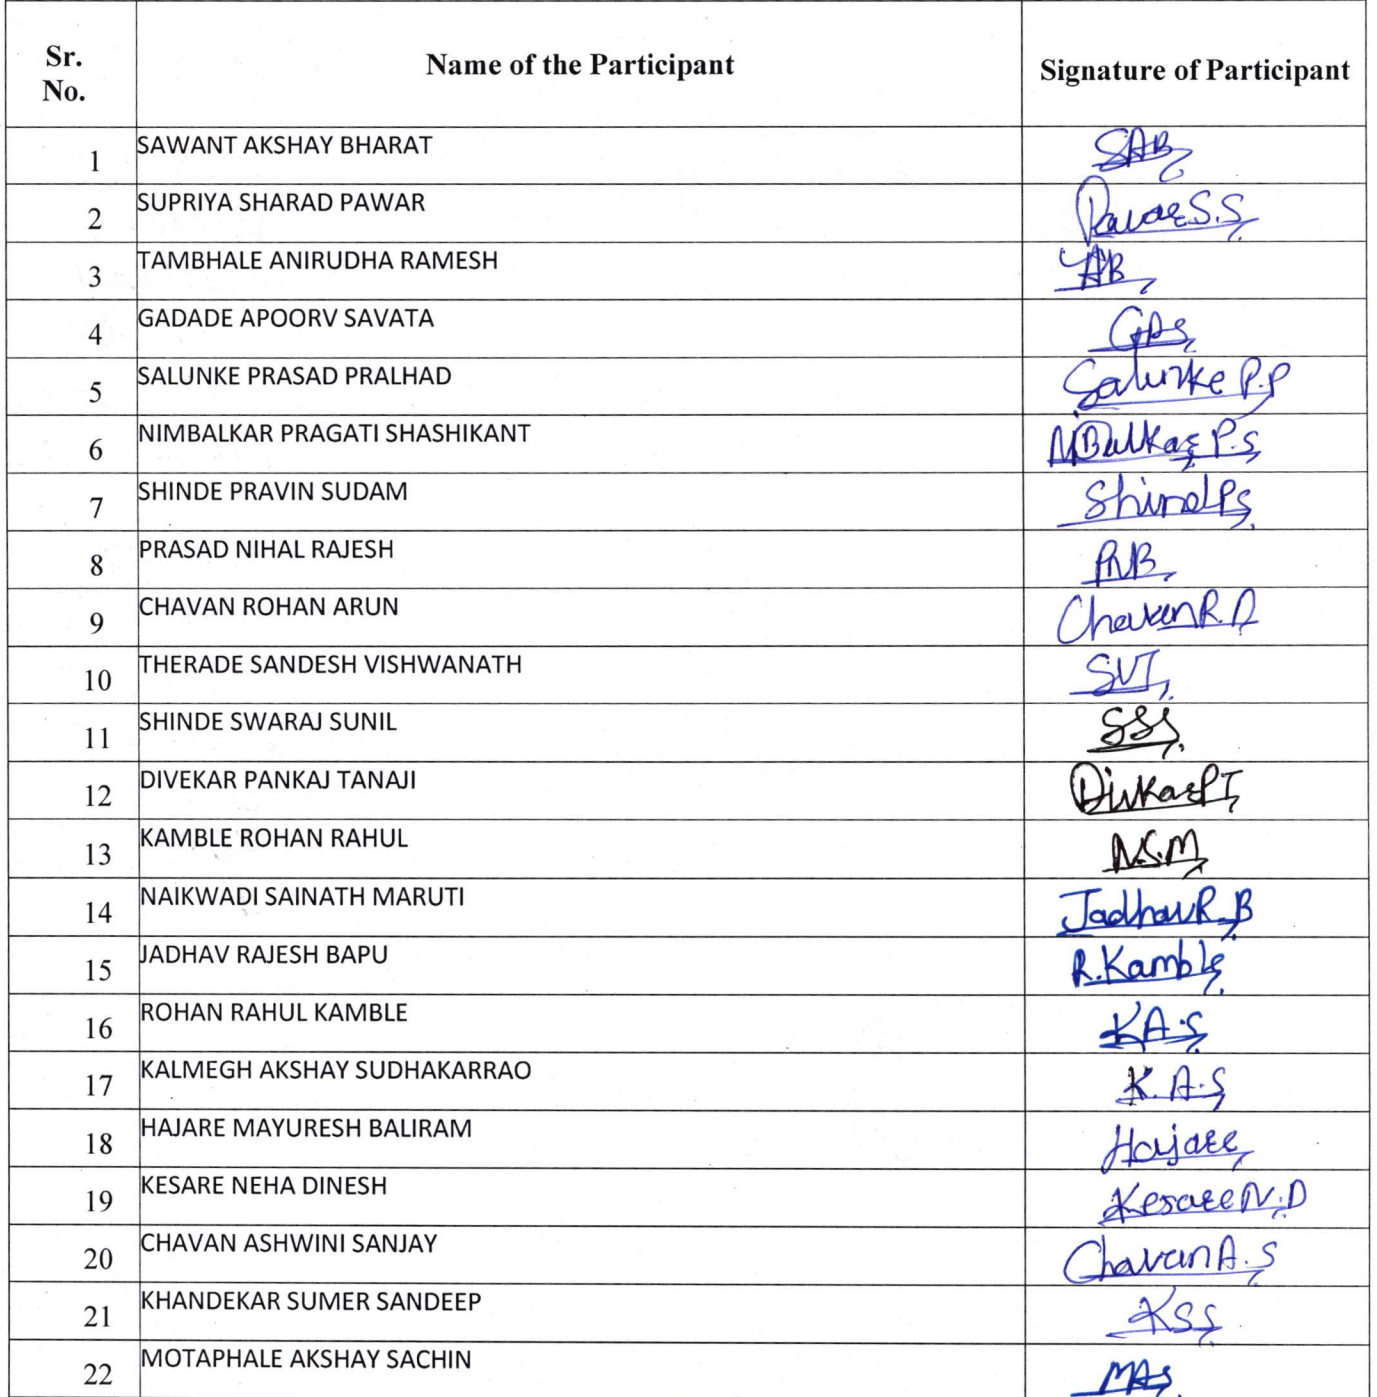 Sr. No. Name of the Participant Signature of Participant
1 SAWANT AKSHAY BHARAT SAB
2 SUPRIYA SHARAD PAWAR Pawar S.S
3 TAMBHALE ANIRUDHA RAMESH
4 GADADE APOORV SAVATA GAS
5 SALUNKE PRASAD PRALHAD Salunke P.P
6 NIMBALKAR PRAGATI SHASHIKANT P.S
7 SHINDE PRAVIN SUDAM
8 PRASAD NIHAL RAJESH
9 CHAVAN ROHAN ARUN Chavan R.A
10 THERADE SANDESH VISHWANATH SVT
11 SHINDE SWARAJ SUNIL SSS
12 DIVEKAR PANKAJ TANAJI
13 KAMBLE ROHAN RAHUL N.S.M
14 NAIKWADI SAINATH MARUTI Jadhav R.B
15 JADHAV RAJESH BAPU R.Kamble
16 ROHAN RAHUL KAMBLE K.A.S
17 KALMEGH AKSHAY SUDHAKARRAO K.A.S
18 HAJARE MAYURESH BALIRAM Hajare
19 KESARE NEHA DINESH Kesare N.D
20 CHAVAN ASHWINI SANJAY Chavan A.S
21 KHANDEKAR SUMER SANDEEP KSS
22 MOTAPHALE AKSHAY SACHIN MAS